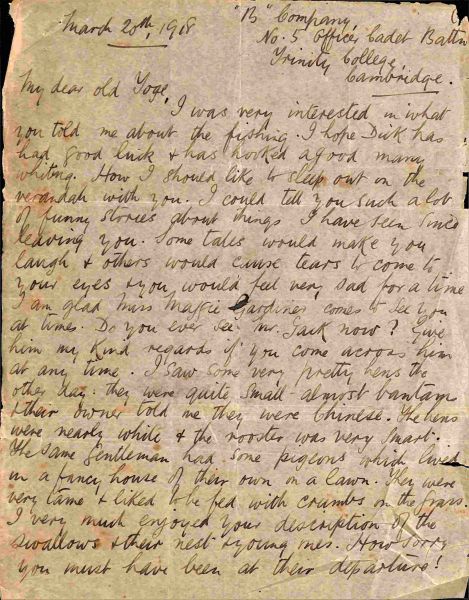 March 20th, 1918
"B" Company,
No. 5 Officer Cadet Battn
Trinity College,
Cambridge.
My dear old Toge,
I was very interested in what
you told me about the fishing. I hope Dick has
had good luck & has hooked a good many
whiting. How I should like to sleep out on the
verandah with you. I could tell you such a lot
of funny stories about things I have seen since
leaving you. Some tales would make you
laugh & others would cause tears to come to
your eyes & you would feel very sad for a time
I am glad Miss Maggie Gardiner comes to see you
at times. Do you ever see Mr. Jack now? Give
him my kind regards if you come across him
at any time. I saw some very pretty hens the
other day: they were quite small - almost bantam
& their owner told me they were Chinese. The hens
were nearly white & the rooster was very smart.
The same gentleman had some pigeons which lived
in a fancy house of their own on a lawn. They were
very tame & liked to be fed with crumbs on the grass.
I very much enjoyed your description of the
swallows & their nest & young ones. How sorry
you must have been at their departure!